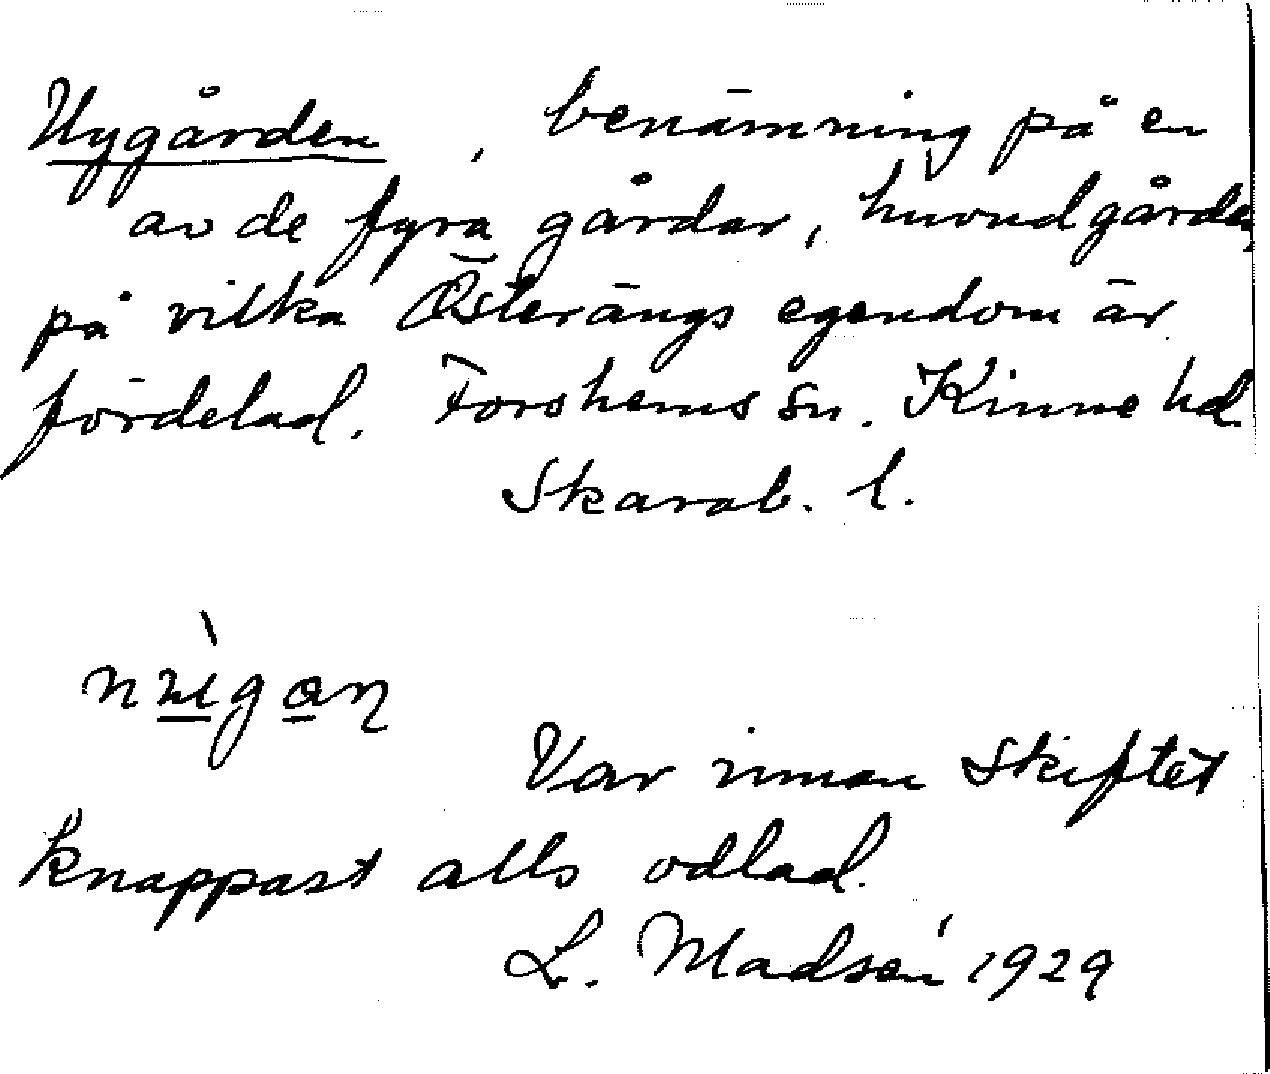 Nygården, benämning på en
av de fyra gårdar, huvudgårde
på vilka Österängs egendom är
fördelad. Forshems sn. Kinne hd
Skarab. l.
Var innan skiftet
knappast alls odlad.
L. Madsén 1929